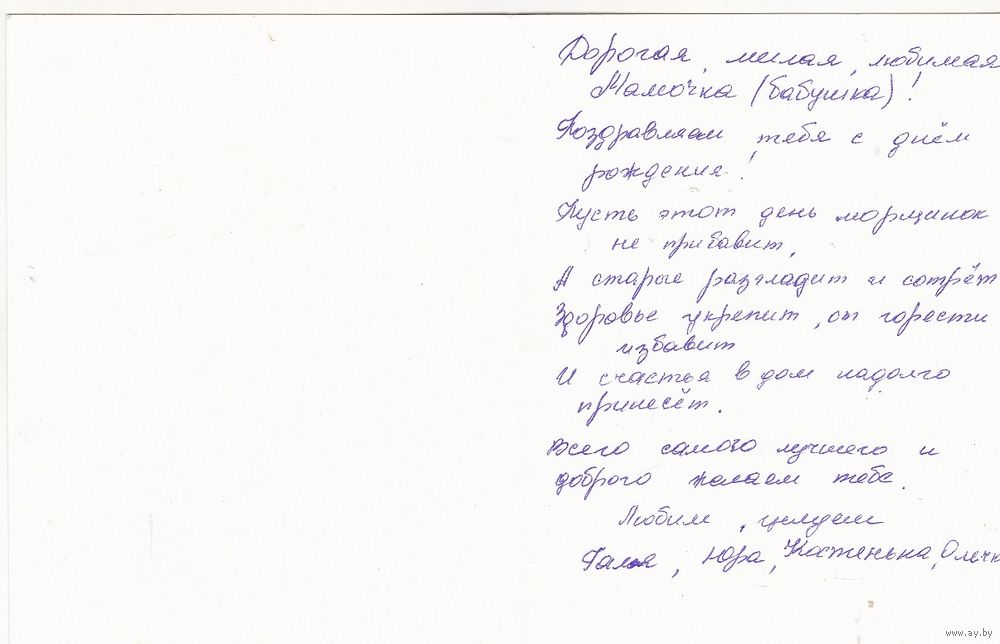 Дорогая, милая, любимая
Мамочка (бабушка)!
Поздравляем тебя с днём
рождения!
Пусть этот день морщинок
не прибавит,
А старые разгладит и сотрёт
Здоровье укрепит, от горести
избавит
И счастья в дом надолго
принесёт.
Всего самого лучшего и
доброго желаем тебе.
Любим, целуем
Галя, Юра, Костенька, Олечк
www.ay.by